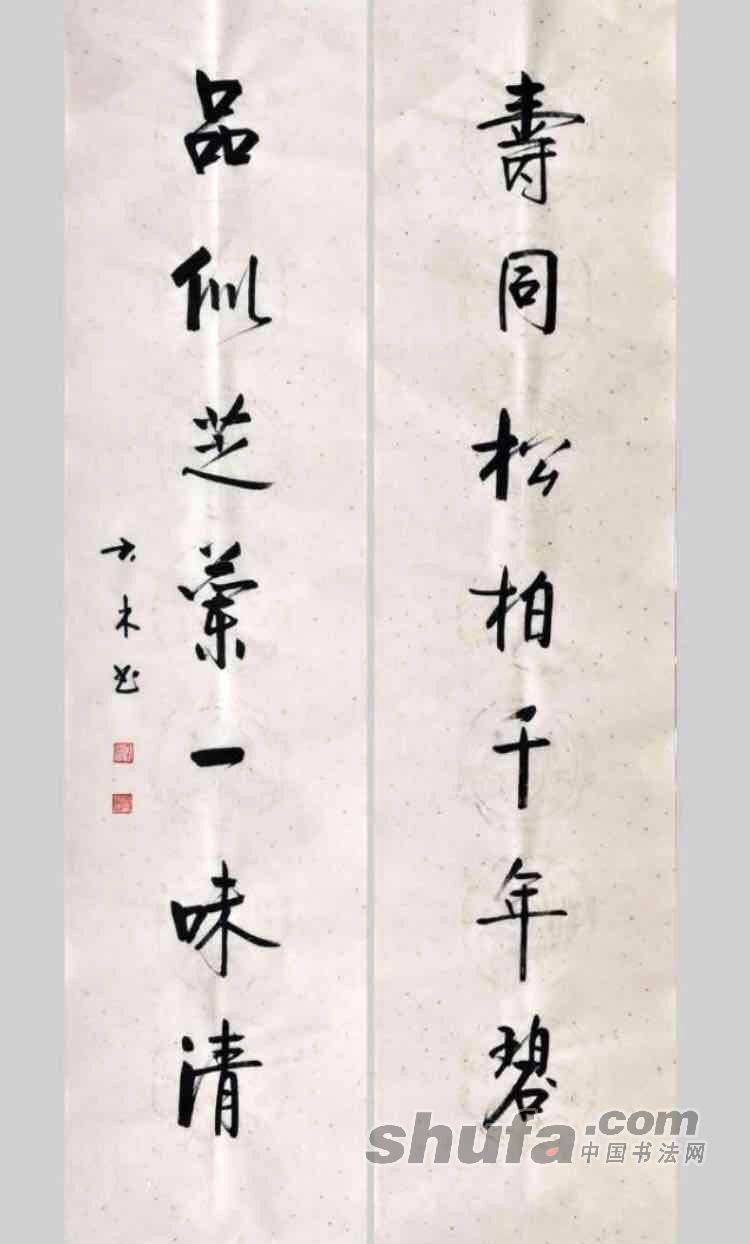 壽同松柏千年碧
品似芝蘭一味清
大木书
shufa.com
中国书法网